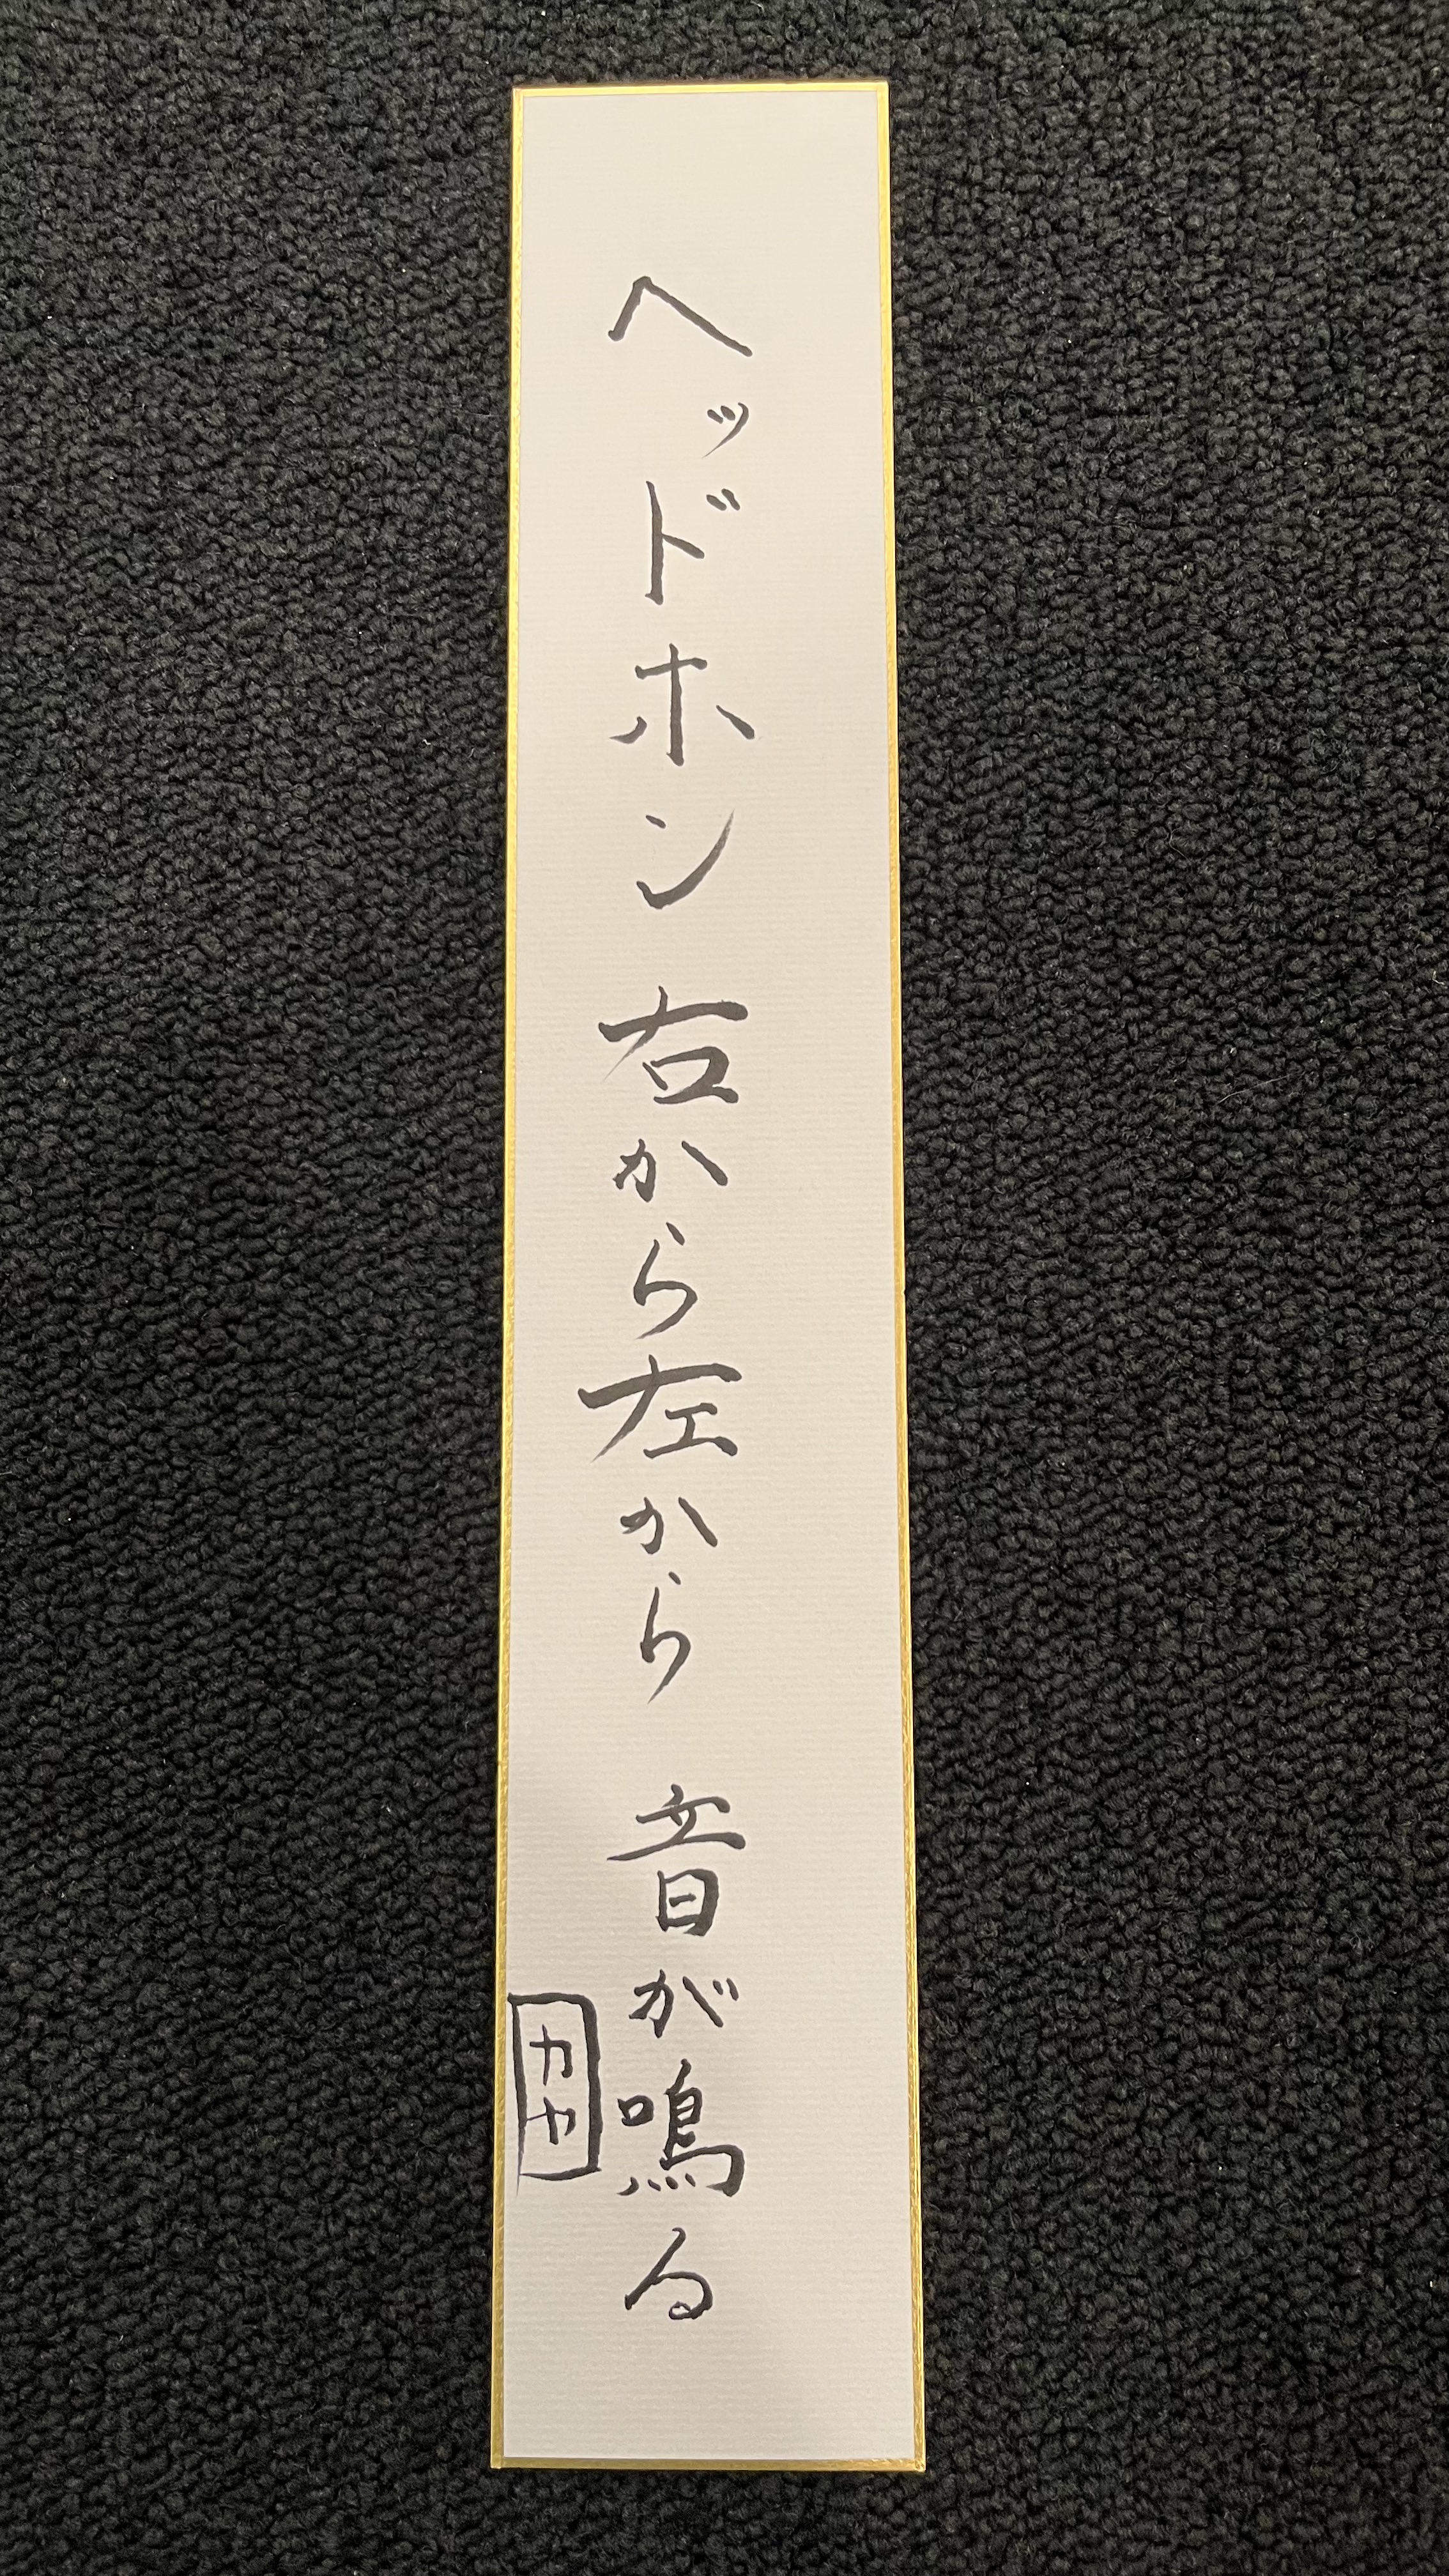 ヘッドホン 右から左から 音が鳴る
カヤ